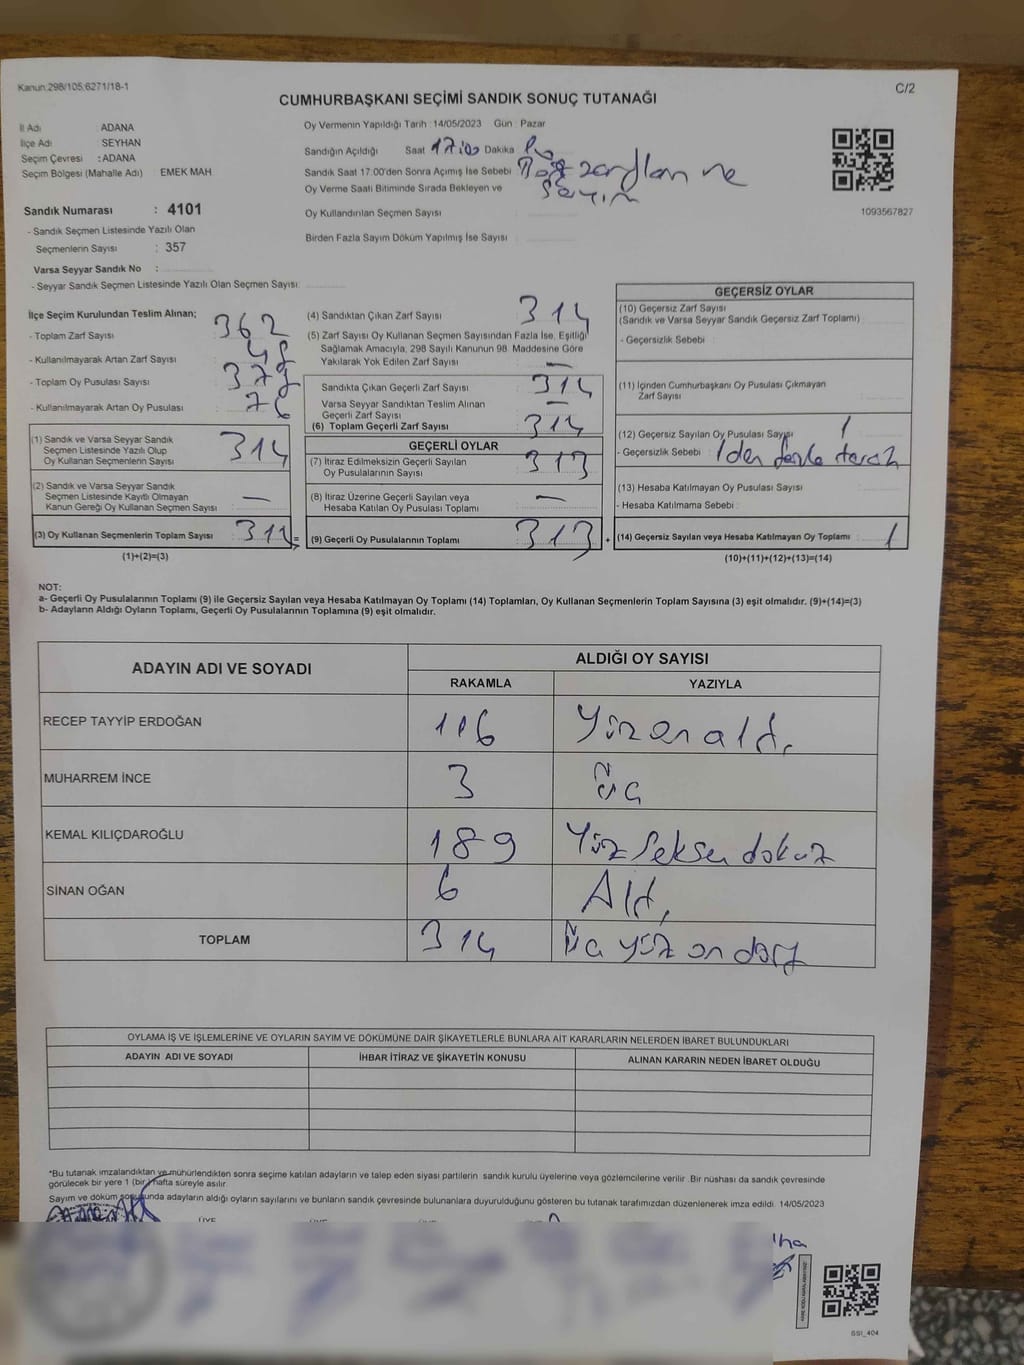 Kanun:298/105;6271/18-1
C/2
CUMHURBAŞKANI SEÇİMİ SANDIK SONUÇ TUTANAĞI
İl Adı ADANA
İlçe Adı SEYHAN
Seçim Çevresi : ADANA
Seçim Bölgesi (Mahalle Adı) EMEK MAH
Sandık Numarası : 4101
- Sandık Seçmen Listesinde Yazılı Olan
Seçmenlerin Sayısı : 357
Varsa Seyyar Sandık No :
- Seyyar Sandık Seçmen Listesinde Yazılı Olan Seçmen Sayısı:
Oy Vermenin Yapıldığı Tarih : 14/05/2023 Gün : Pazar
Sandığın Açıldığı Saat 17:00 Dakika
Sandık Saat 17.00'den Sonra Açımış İse Sebebi
Oy Verme Saati Bitiminde Sırada Bekleyen ve
Oy Kullandırılan Seçmen Sayısı :
Birden Fazla Sayım Döküm Yapılmış İse Sayısı :
zarfların ve
Sayım
1093567827
İlçe Seçim Kurulundan Teslim Alınan;
- Toplam Zarf Sayısı : 362
- Kullanılmayarak Artan Zarf Sayısı : 48
- Toplam Oy Pusulası Sayısı :
- Kullanılmayarak Artan Oy Pusulası : 76
(1) Sandık ve Varsa Seyyar Sandık
Seçmen Listesinde Yazılı Olup
Oy Kullanan Seçmenlerin Sayısı : 314
(2) Sandık ve Varsa Seyyar Sandık
Seçmen Listesinde Kayıtlı Olmayan
Kanun Gereği Oy Kullanan Seçmen Sayısı : —
(3) Oy Kullanan Seçmenlerin Toplam Sayısı : 314 =
(1)+(2)=(3)
(4) Sandıktan Çıkan Zarf Sayısı : 314
(5) Zarf Sayısı Oy Kullanan Seçmen Sayısından Fazla İse, Eşitliği
Sağlamak Amacıyla, 298 Sayılı Kanunun 98. Maddesine Göre
Yakılarak Yok Edilen Zarf Sayısı : —
Sandıkta Çıkan Geçerli Zarf Sayısı : 314
Varsa Seyyar Sandıktan Teslim Alınan
Geçerli Zarf Sayısı : —
(6) Toplam Geçerli Zarf Sayısı : 314
GEÇERLİ OYLAR
(7) İtiraz Edilmeksizin Geçerli Sayılan
Oy Pusulalarının Sayısı : 313
(8) İtiraz Üzerine Geçerli Sayılan veya
Hesaba Katılan Oy Pusulası Toplamı : —
(9) Geçerli Oy Pusulalarının Toplamı : 313 +
GEÇERSİZ OYLAR
(10) Geçersiz Zarf Sayısı
(Sandık ve Varsa Seyyar Sandık Geçersiz Zarf Toplamı) :
- Geçersizlik Sebebi :
(11) İçinden Cumhurbaşkanı Oy Pusulası Çıkmayan
Zarf Sayısı :
(12) Geçersiz Sayılan Oy Pusulası Sayısı : 1
- Geçersizlik Sebebi : 1 den fazla tercih
(13) Hesaba Katılmayan Oy Pusulası Sayısı :
- Hesaba Katılmama Sebebi :
(14) Geçersiz Sayılan veya Hesaba Katılmayan Oy Toplamı : 1
(10)+(11)+(12)+(13)=(14)
NOT:
a- Geçerli Oy Pusulalarının Toplamı (9) ile Geçersiz Sayılan veya Hesaba Katılmayan Oy Toplamı (14) Toplamları, Oy Kullanan Seçmenlerin Toplam Sayısına (3) eşit olmalıdır. (9)+(14)=(3)
b- Adayların Aldığı Oyların Toplamı, Geçerli Oy Pusulalarının Toplamına (9) eşit olmalıdır.
ADAYIN ADI VE SOYADI ALDIĞI OY SAYISI
RAKAMLA YAZIYLA
RECEP TAYYİP ERDOĞAN 116 Yüzonaltı
MUHARREM İNCE 3 Üç
KEMAL KILIÇDAROĞLU 189 Yüz seksen dokuz
SİNAN OĞAN 6 Altı
TOPLAM 314 Üç yüz on dört
OYLAMA İŞ VE İŞLEMLERİNE VE OYLARIN SAYIM VE DÖKÜMÜNE DAİR ŞİKAYETLERLE BUNLARA AİT KARARLARIN NELERDEN İBARET BULUNDUKLARI
ADAYIN ADI VE SOYADI İHBAR İTİRAZ VE ŞİKAYETİN KONUSU ALINAN KARARIN NEDEN İBARET OLDUĞU
*Bu tutanak imzalandıktan ve mühürlendikten sonra seçime katılan adayların ve talep eden siyasi partilerin sandık kurulu üyelerine veya gözlemcilerine verilir .Bir nüshası da sandık çevresinde
görülecek bir yere 1 (bir) hafta süreyle asılır.
Sayım ve döküm sonucunda adayların aldığı oyların sayılarını ve bunların sandık çevresinde bulunanlara duyurulduğunu gösteren bu tutanak tarafımızdan düzenlenerek imza edildi. 14/05/2023
ÜYE
SSI_404